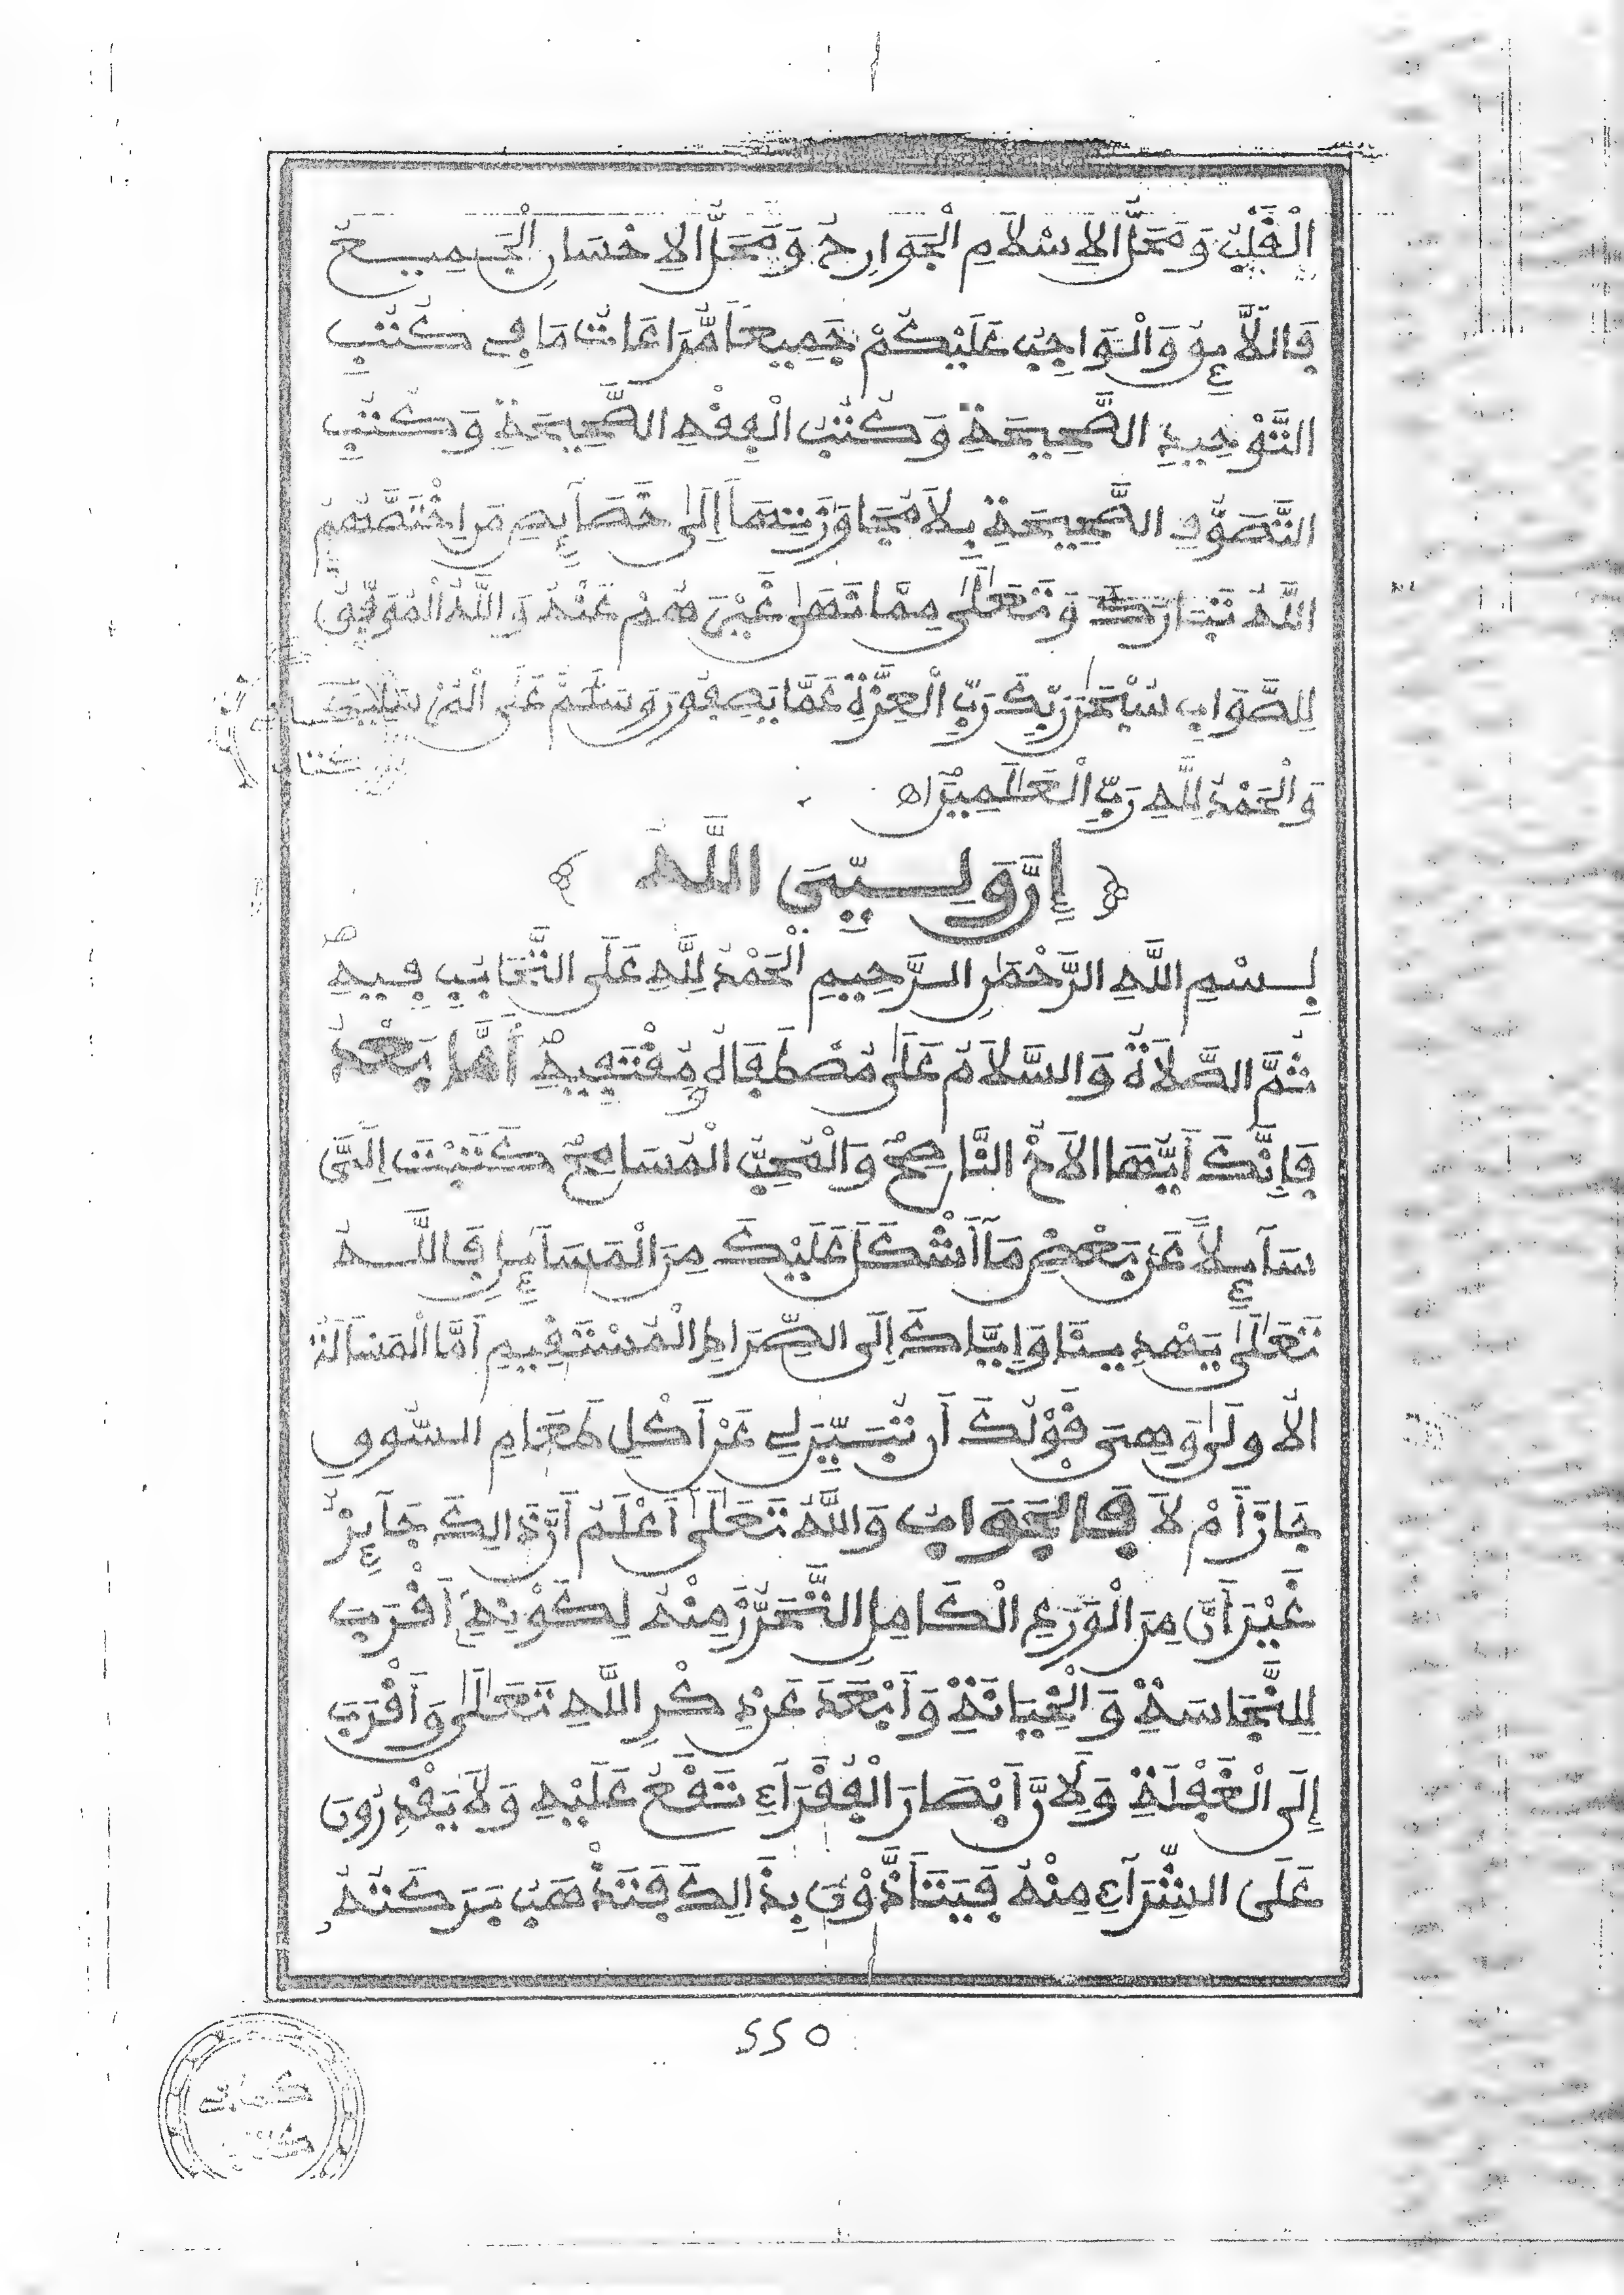 الْقَلْبُ وَمَحَلُّ الِاسْلَامِ الْجَوَارِحُ وَمَحَلُّ الِاحْسَانِ الْجَمِيعُ
فَاللَّائِقُ وَالْوَاجِبُ عَلَيْكُمْ جَمِيعًا مُّرَاعَاتُ مَا فِي كُتُبِ
التَّوْحِيدِ الصَّحِيحَةِ وَكُتُبُ الْفِقْهِ الصَّحِيحَةِ وَكُتُبِ
التَّصَوُّفِ الصَّحِيحَةِ بِلَا مُجَاوَزَتِهَا إِلَى خَصَآئِصِ مَنِ اخْتَصَّهُمُ
اللَّهُ تَبَارَكَ وَتَعَلَى مِمَّا نَهَى غَيْرَهُمْ عَنْهُ وَاللَّهُ الْمُوَفِّقُ
لِلصَّوَابِ سُبْحَنَ رَبِّكَ رَبِّ الْعِزَّةِ عَمَّا يَصِفُونَ وَسَلَمٌ عَلَى الْمُرْسَلِينَ
وَالْحَمْدُ لِلَّهِ رَبِّ الْعَلَمِينَ اه
﴿ إِنَّ وَلِــيِّيَ اللَّهُ ﴾
بِسْمِ اللَّهِ الرَّحْمَنِ الرَّحِيمِ الْحَمْدُ لِلَّهِ عَلَى التَّحَابُبِ فِيهِ
ثُمَّ الصَّلَاةُ وَالسَّلَامُ عَلَى مُصْطَفَاهُ وَمُقْتَفِيهِ أَمَّا بَعْدُ
فَإِنَّكَ أَيُّهَا الَاخُ النَّاصِحُ وَالْمُحِبُّ الْمُسَامِحُ كَتَبْتَ إِلَيَّ
سَآئِلًا عَن بَعْضِ مَآ أَشْكَلَ عَلَيْكَ مِنَ الْمَسَآئِلِ فَاللَّــهُ
تَعَلَى يَهْدِينَا وَإِيَّاكَ إِلَى الصِّرَاطِ الْمُسْتَقِيمِ أَمَّا الْمَسْأَلَةُ
الُاولَى وَهِيَ قَوْلُكَ أَن تُبَيِّنَ لِي عَنْ أَكْلِ طَعَامِ السُّوقِ
جَازَ أَمْ لَا فَالْجَوَابُ وَاللَّهُ تَعَلَى أَعْلَمُ أَنَّ ذَالِكَ جَآئِزٌ
غَيْرَ أَنَّ مِنَ الْوَرَعِ الْكَامِلِ التَّحَرُّزَ مِنْهُ لِكَوْنِهِ أَقْرَبَ
لِلنَّجَاسَةِ وَالْخِيَانَةِ وَأَبْعَدَ عَن ذِكْرِ اللَّهِ تَعَلَى وَأَقْرَبَ
إِلَى الْغَفْلَةِ وَلِأَنَّ أَبْصَارَ الْفُقَرَآءِ تَقَعُ عَلَيْهِ وَلَا يَقْدِرُونَ
عَلَى الشِّرَآءِ مِنْهُ فَيَتَأَذَّوْنَ بِذَالِكَ فَتَذْهَبُ بَرَكَتُهُ
550